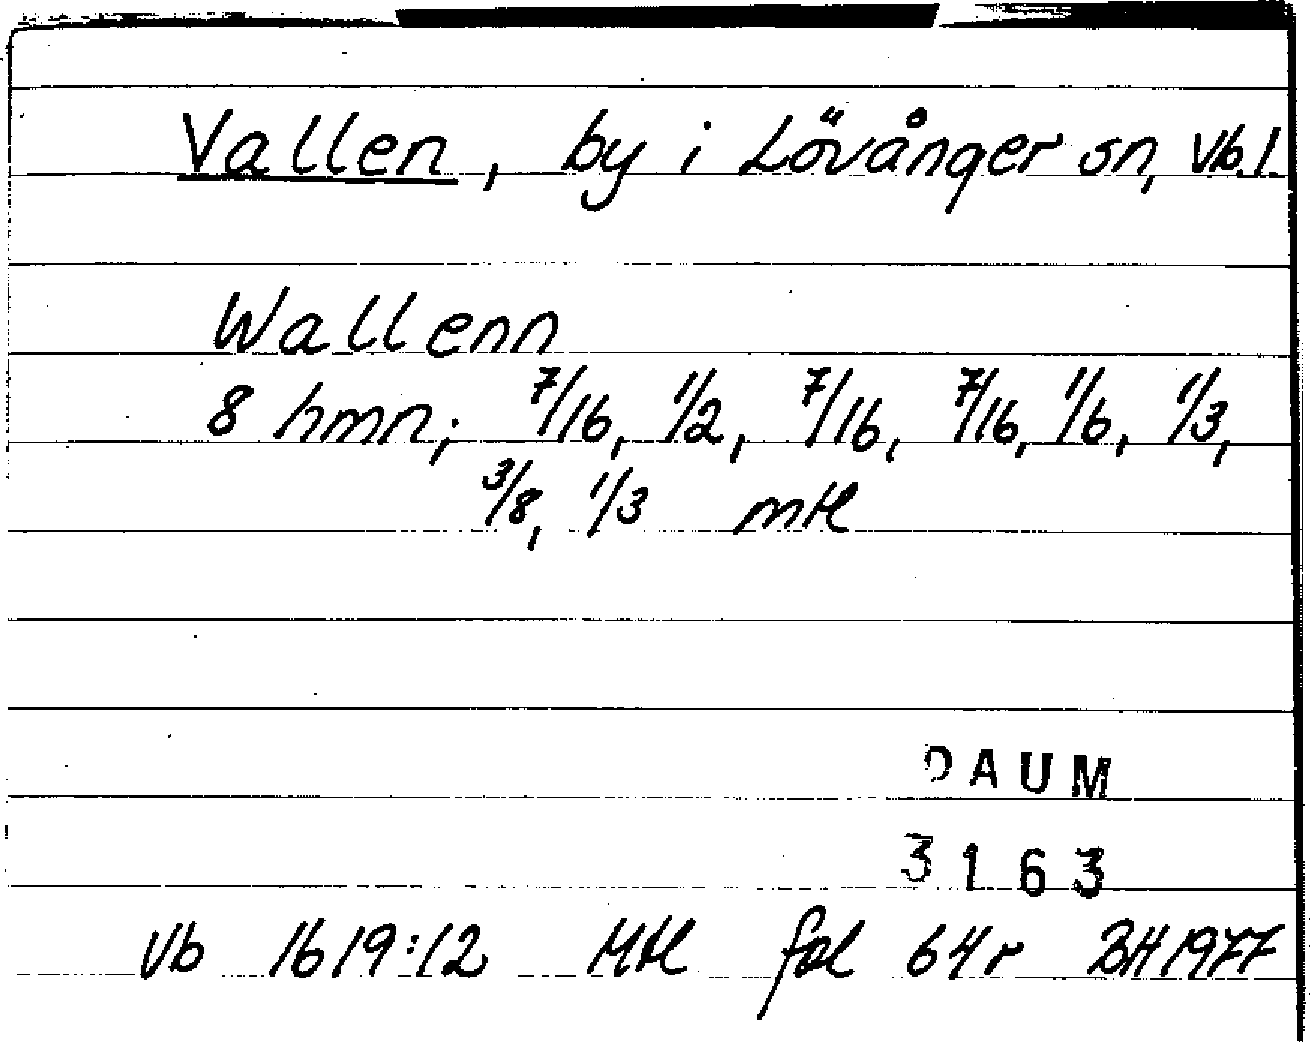 Vallen, by i Lövånger sn, Vb.l.
Wallenn
8 hmn; 7/16, 1/2, 7/16, 7/16, 1/6, 1/3,
3/8, 1/3 mtl
DAUM
3163
Vb 1619:12 Mtl fol 64r BH 1977